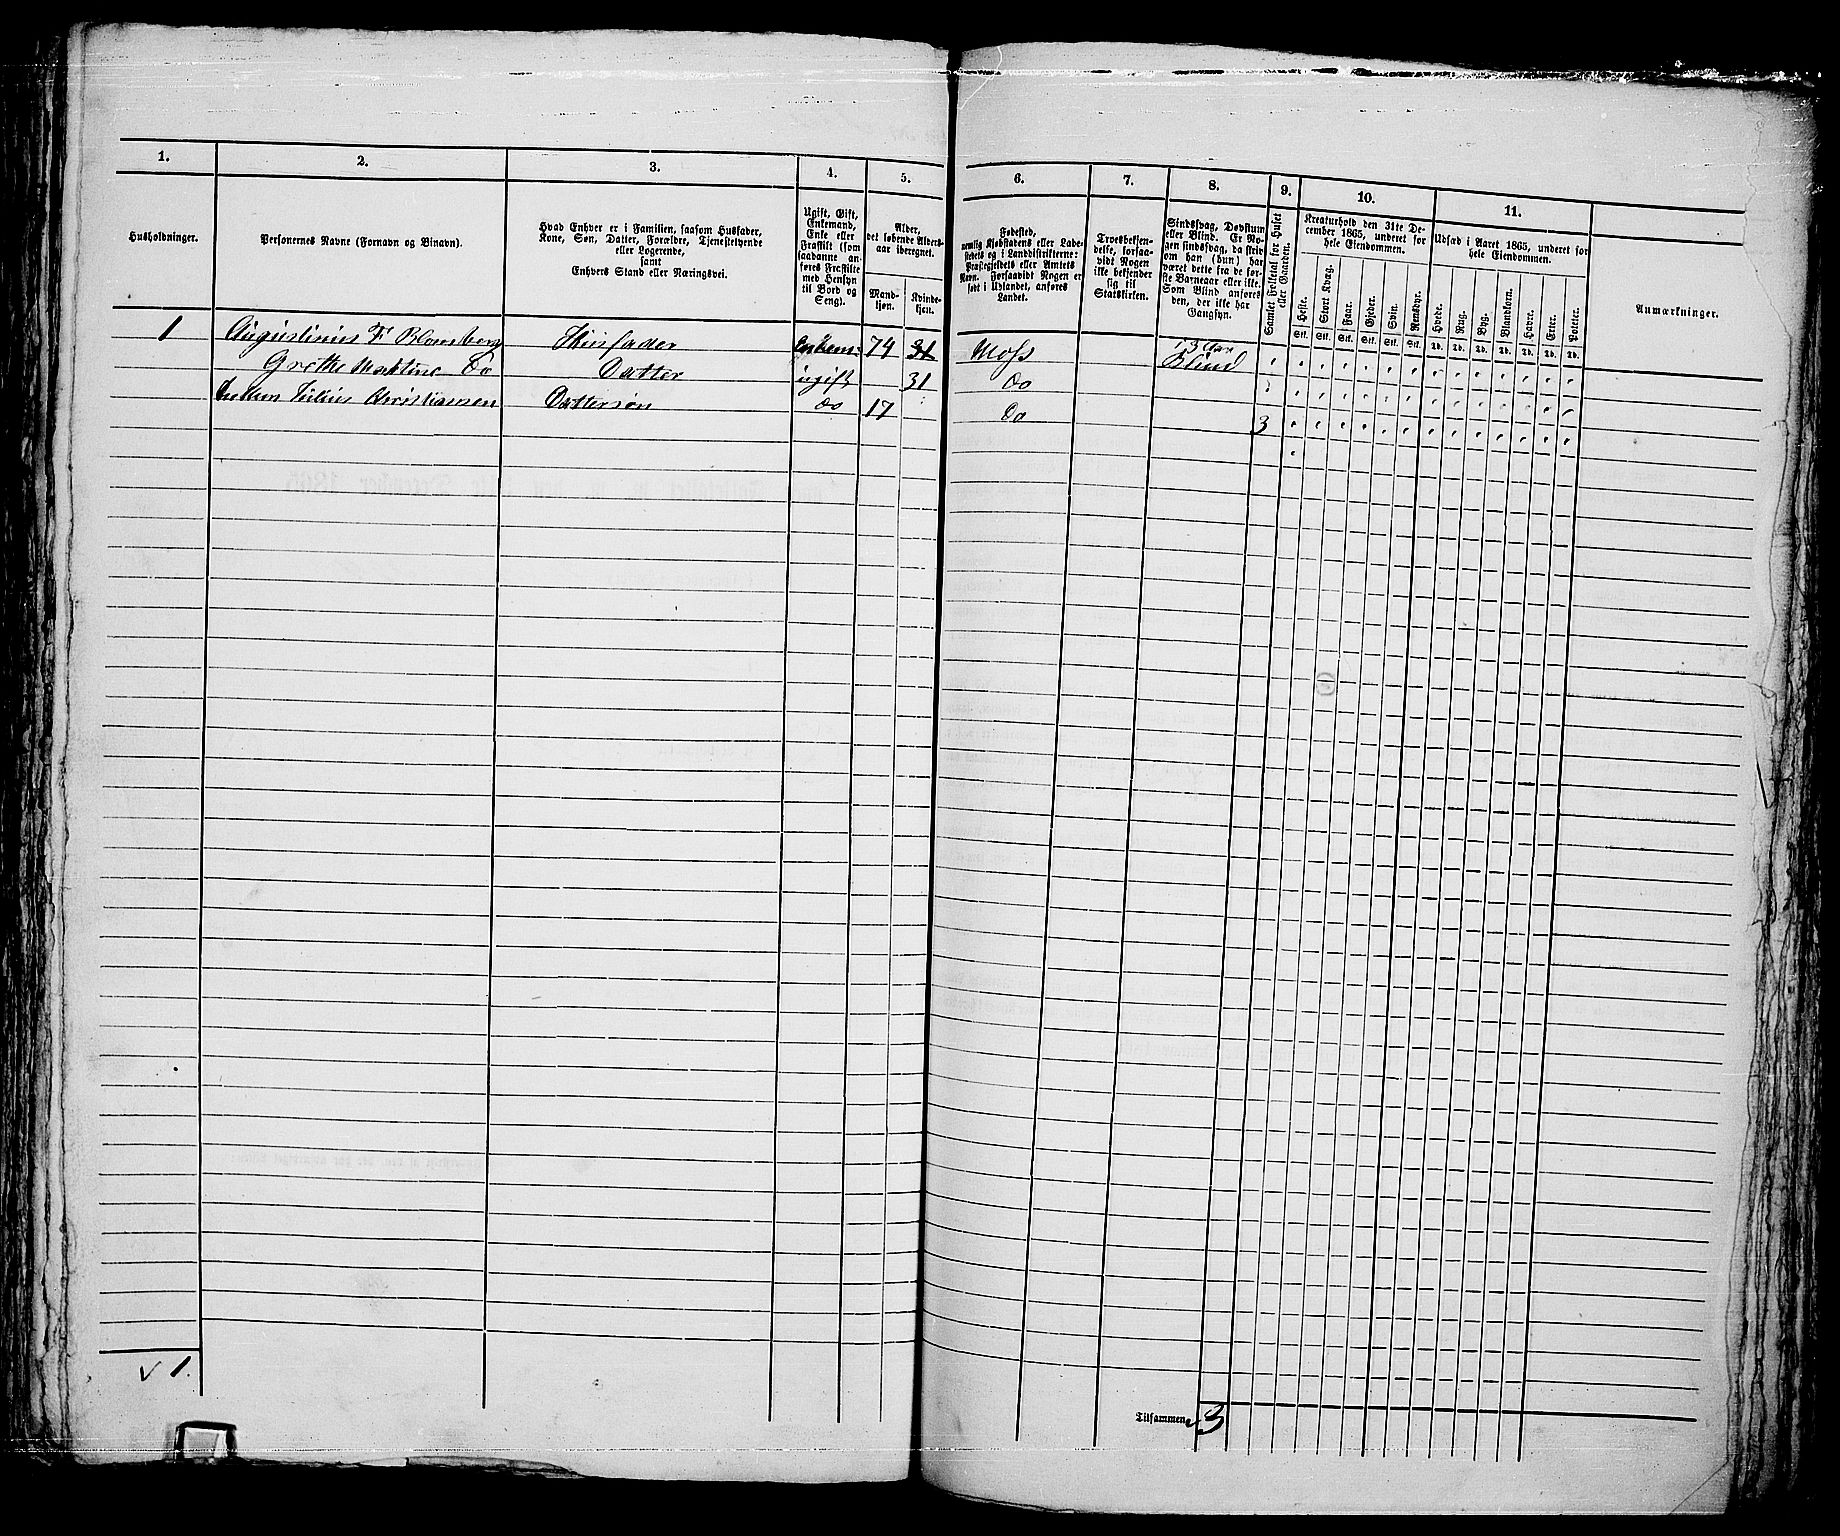 1. 2. 3. 4. 5. 6. 7. 8. 9. 10. 11.
Husholdninger.
Personernes Navne (Fornavn og Binavn).
Hvad Enhver er i Familien, saasom Husfader,
Kone, Søn, Datter, Forældre, Tjenestetyende
eller Logerende,
samt
Enhvers Stand eller Næringsvei.
Ugift, Gift,
Enkemand,
Enke eller
Fraskilt (som
saadanne an-
føres Fraskilte
med Hensyn
til Bord og
Seng).
Alder,
det løbende Alders-
aar iberegnet.
Mand-
kjøn.
Kvinde-
kjøn.
Fødested,
nemlig Kjøbstadens eller Lade-
stedets og i Landdistrikterne:
Præstegjeldets eller Amtets
Navn. Forsaavidt Nogen er
født i Udlandet, anføres
Landet.
Troesbekjen-
delse, forsaa-
vidt Nogen
ikke bekjender
sig til
Statskirken.
Sindssvag, Døvstum
eller Blind. Er No-
gen sindssvag, da skriv
om han (hun) har
været dette fra de før-
ste Barneaar eller ikke.
Som Blind anføres
den, der ikke har
Gangsyn.
Samlet Folketal for Huset
eller Gaarden.
Kreaturhold den 31te De-
cember 1865, underet for
hele Eiendommen.
Heste. Stort Kvæg. Faar. Gjeder. Svin. Rensdyr.
Stk. Stk. Stk. Stk. Stk. Stk.
Udsæd i Aaret 1865, underet for
hele Eiendommen.
Hvede. Rug. Byg. Blandkorn. Havre. Erter. Poteter.
Td. Td. Td. Td. Td. Td. Td.
Anmærkninger.
1 Augustinius F Blomberg Husfader Enkem: 74 31 Moss Blind
Grethe Martine Do Datter ugift 31 Do
Julius Christiansen Dattersøn do 17 Do 3
v 1.
Tilsammen v 3